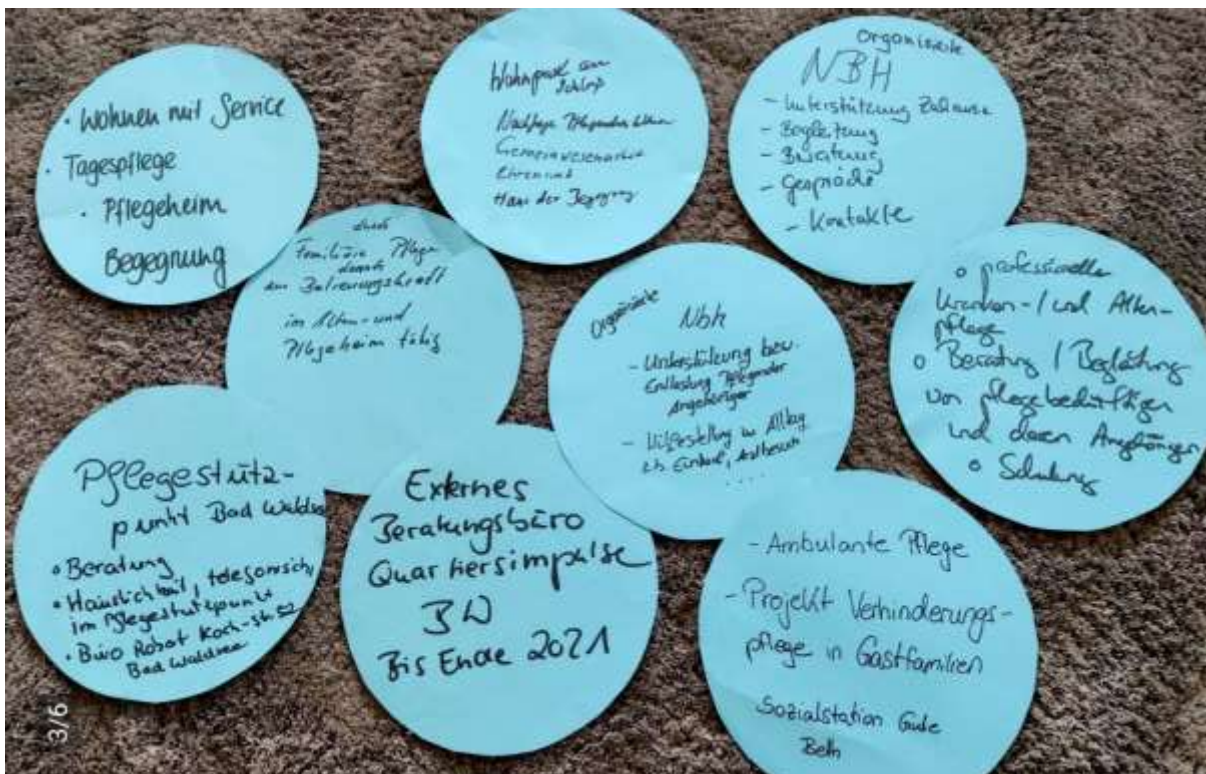 · Wohnen mit Service
· Tagespflege
· Pflegeheim
Begegnung
Wohnpark am
Schloß
Gemeinwesenarbeit
Ehrenamt
Haus der Begegnung
Organisierte
NBH
- Unterstützung Zuhause
- Begleitung
- Beratung
- Gespräche
- Kontakte
durch
Familiäre Pflege
im Alten- und
Pflegeheim tätig
Organisierte
Nbh
- Unterstützung bzw.
Entlastung Pflegender
Angehöriger
o professionelle
Kranken- / und Alten-
pflege
o Beratung / Begleitung
von pflegebedürftigen
und deren Angehörigen
o Schulung
Pflegestütz-
punkt Bad Waldsee
• Beratung
• Häuslichkeit, telefonisch,
im Pflegestützpunkt
• Büro Robert Koch-Str. 52
Bad Waldsee
Externes
Beratungsbüro
Quartiersimpulse
BW
Bis Ende 2021
- Ambulante Pflege
- Projekt Verhinderungs-
pflege in Gastfamilien
Sozialstation Gute
Beth
3/6